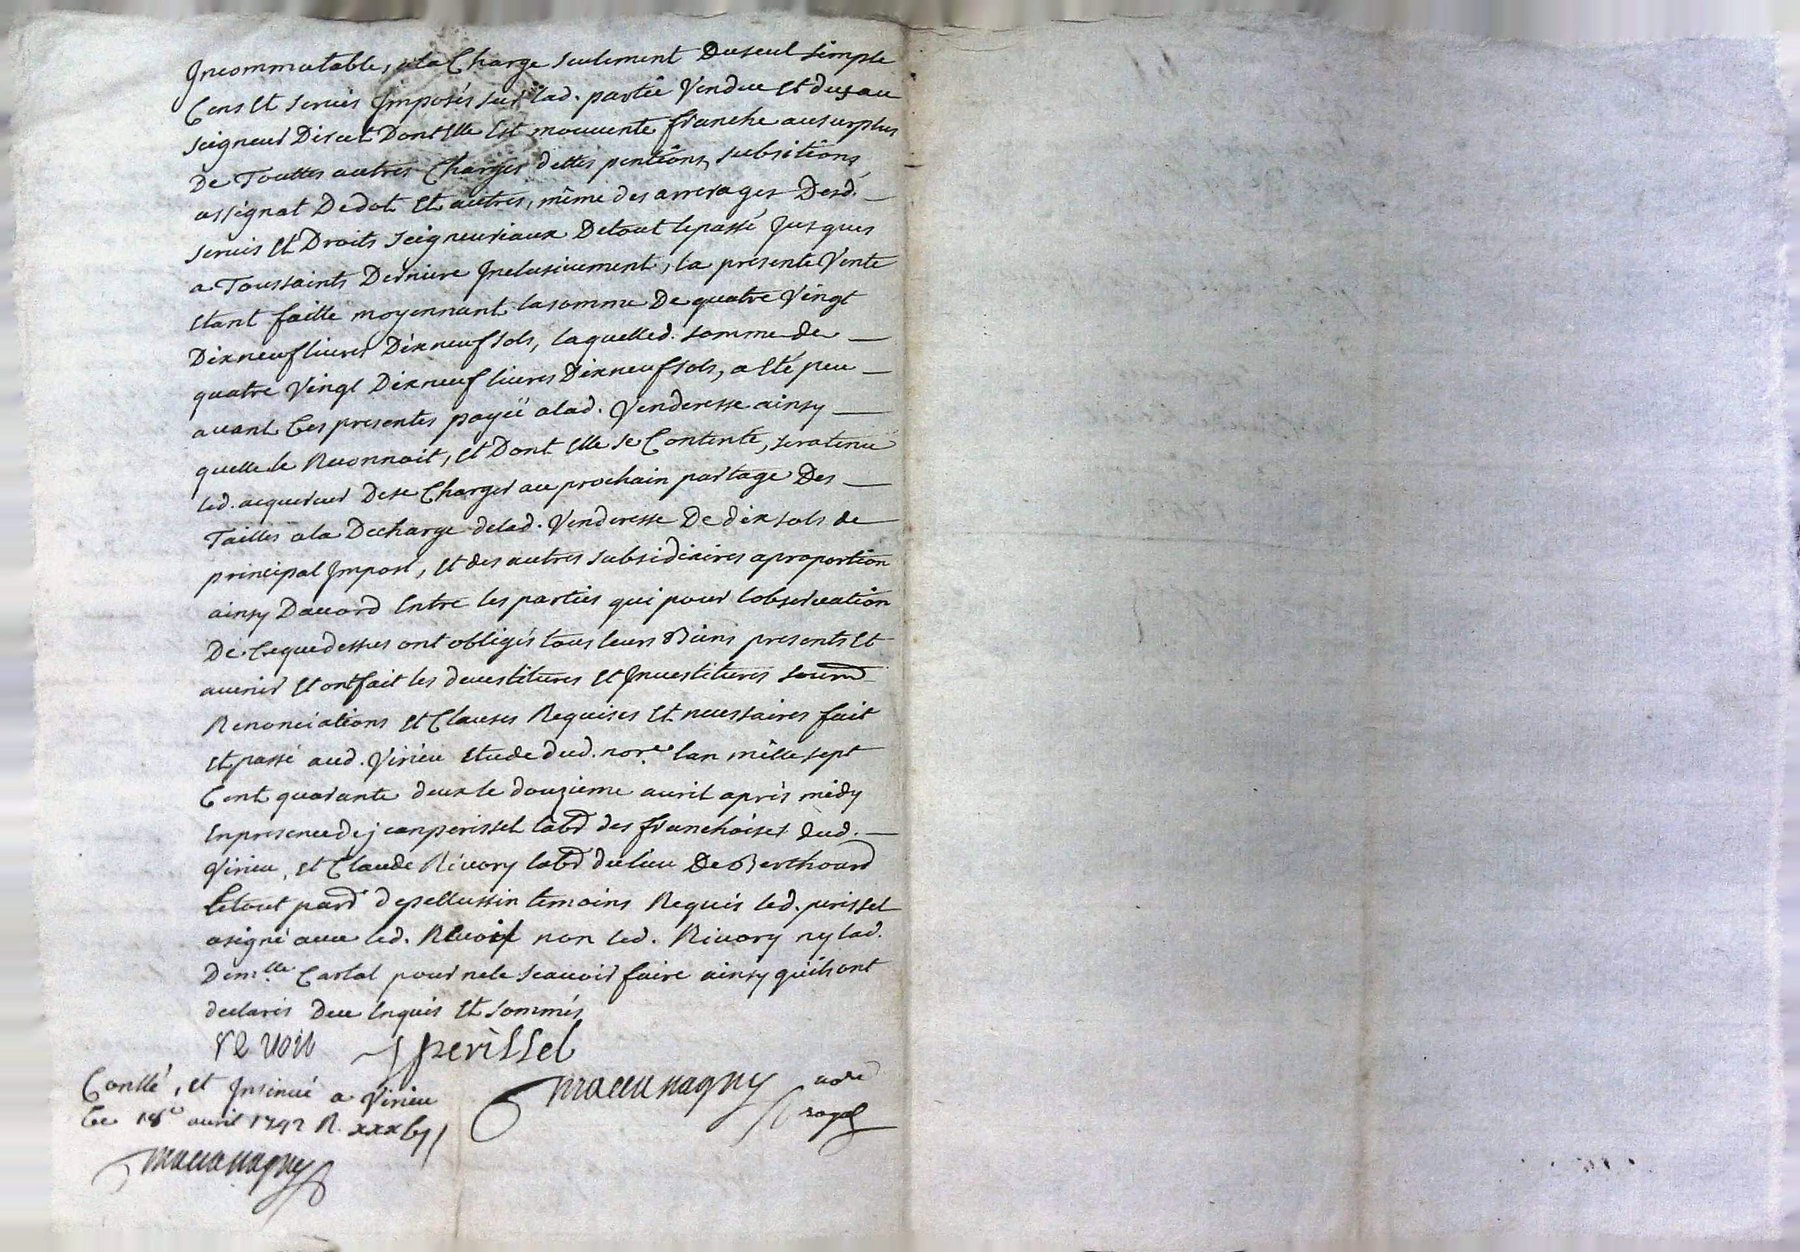 Incommutable, ala Charge seulement Duseul simple
Cens et servis Imposés sur lad. partie Vendue et dus au
seigneur Direct Dont Elle Est mouvente franche ausurplus
De Touttes autres Charges dettes pentions, subsitions
assignat Dedot et autres, même des arrerages Desd.
servis et Droits seigneuriaux Detout lepassé Jusques
a Toussaints Derniere Inclusivement, la présente Vente
Etant faitte moyennant lasomme De quatre Vingt
Dixneuf livres Dixneuf sols, laquelled. somme de
quatre Vingt Dixneuf livres Dixneuf sols, a Eté peu
avant Ces presentes payéë alad. Venderesse ainsy
quelle le Reconnoit, et Dont Elle se Contente, seratenu
led. acquereur Dese Charger au prochain partage Des
Tailles ala Decharge delad. Venderesse De dix sols de
principal Impost, et des autres subsidiaires aproportion
ainsy Daccord Entre les parties qui pour lobservation
De Cequedessus ont obligés tous leurs Biens presents et
avenir et ont fait les devestitures et Investitures soumd
Renonciations et Clauses Requises et necessaires fait
et passé aud. Virieu Etude dud. nore. lan mille sept
Cent quarante deux le douzieme avril après midy
Enpresence de jean perissel labd des franchises dud.
Virieu, et Claude Rivory labd du lieu De Berthoard
letout pard depellussin temoins Requis led. perissel
asigné avec led. Revoit non led. Rivory ny lad.
Demlle Carlat pour nele sçavoir faire ainsy quils ont
declarés Deu Enquis et sommés
revoit jperissel
Conllé, et Insinué a Virieu
Ce 18e avril 1742 R.
nore
royal